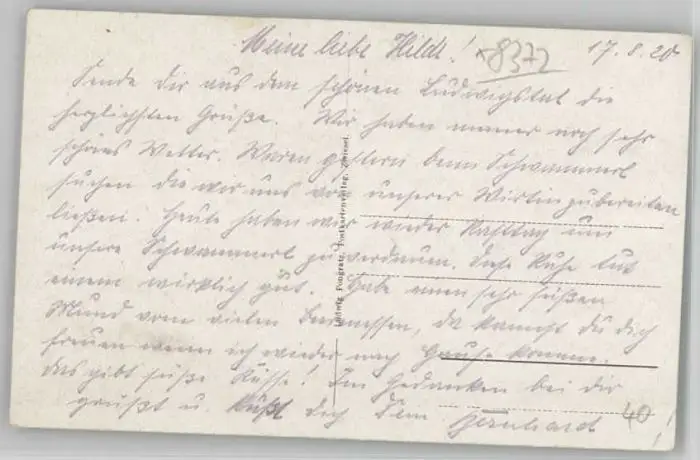 Meine liebe Hilde! *8372 17.8.20
Sende dir aus dem schönen Ludwigstal die
herzlichsten Grüße. Wir haben immer noch sehr
schönes Wetter. Waren gestern beim Schwammerl
suchen die wir uns von unserer Wirtin zubereiten
ließen. Heute haben wir wieder Rasttag um
unsere Schwammerl zu verdauen. Diese Ruhe tut
einem wirklich gut. Habe einen sehr süßen
Mund vom vielen Beeressen, da kannst du dich
freuen wenn ich wieder nach Hause komme.
das gibt süße Küsse! In Gedanken bei dir
grüßt u. küßt dich Dein Bernhard
40
Ludwig Pongratz, Postkartenverlag, Zwiesel.